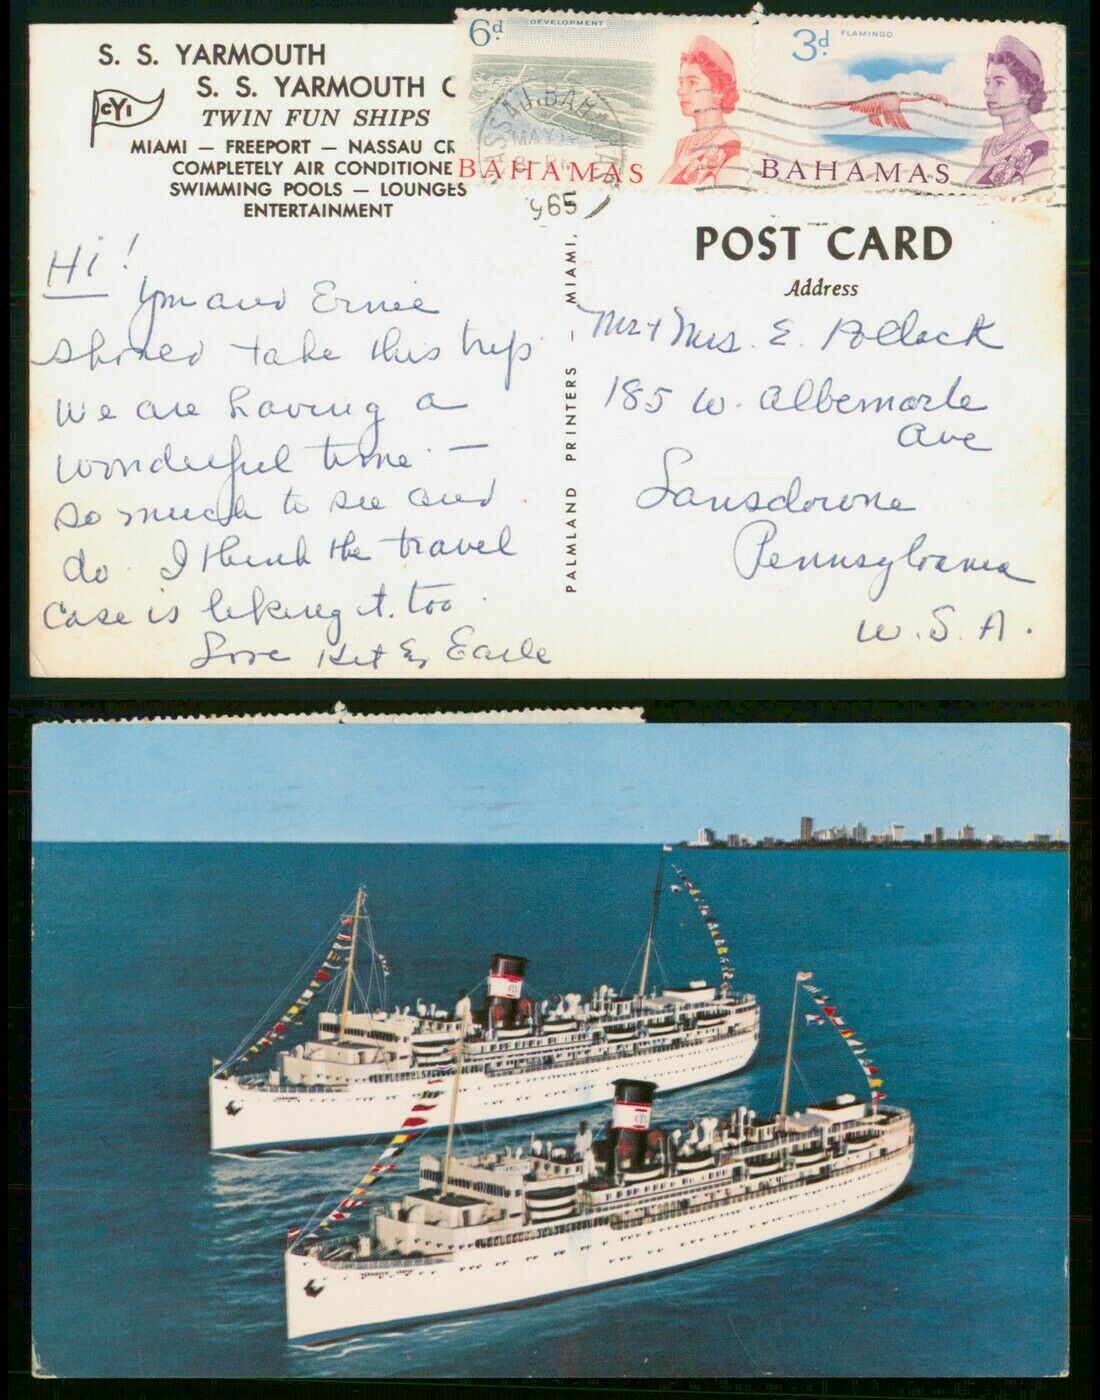 S. S. YARMOUTH
S. S. YARMOUTH C
CYI
TWIN FUN SHIPS
MIAMI — FREEPORT — NASSAU CR
COMPLETELY AIR CONDITIONE
SWIMMING POOLS — LOUNGES
ENTERTAINMENT
6d
DEVELOPMENT
BAHAMAS
3d
FLAMINGO
BAHAMAS
NASSAU. BAH
MAY
POST CARD
Address
Hi!
You and Ernie
should take this trip
We are having a
wonderful time —
so much to see and
do. I think the travel
case is liking it too.
Love Kit & Earle
PALMLAND PRINTERS — MIAMI,
Mr + Mrs. E. Pollack
185 W. Albemarle
Ave
Lansdowne
Pennsylvania
U. S. A.